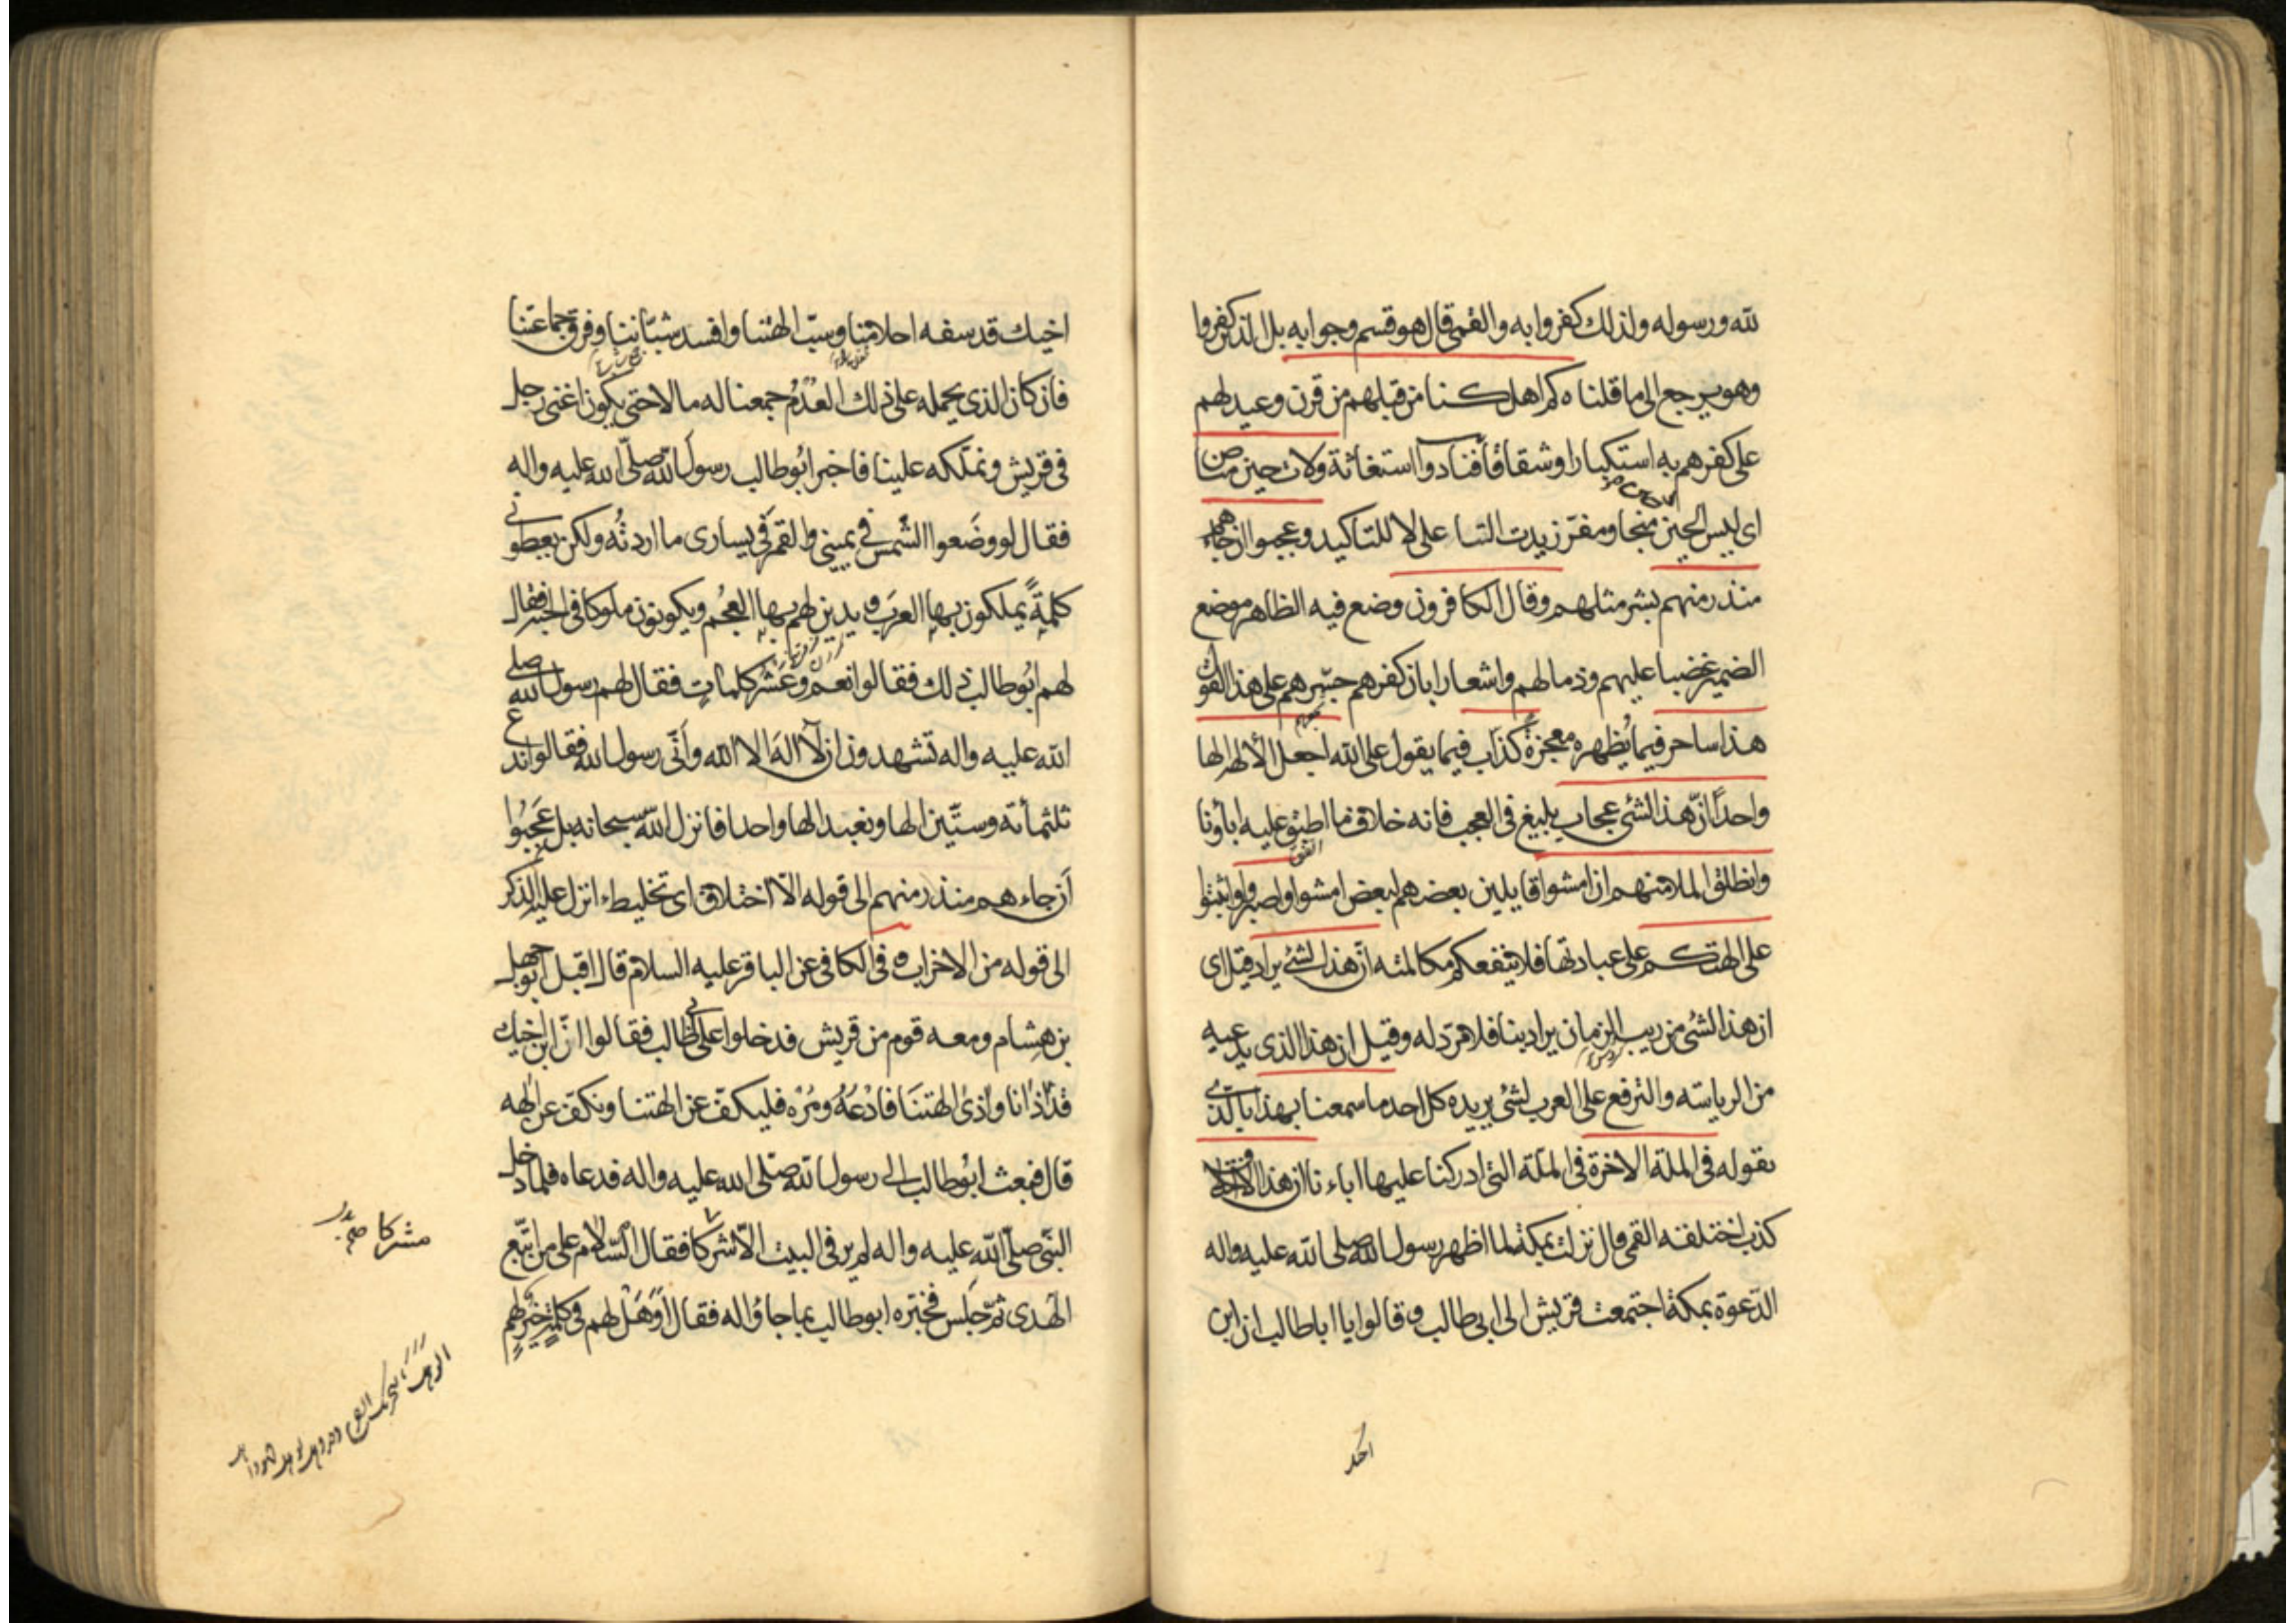 لله ورسوله ولذلك كفروا به والقمى قال هو قسم وجوابه بل الذين كفروا
وهو يرجع الى ما قلناه كم اهلكنا من قبلهم من قرن وعيد لهم
على كفرهم به استكبارا وشقاقا فنادوا استغاثة ولات حين مناص
اى ليس الحين منجا ومفر زيدت التا على لا للتاكيد وعجبوا ان جاءهم
منذر منهم بشر مثلهم وقال الكافرون وضع فيه الظاهر موضع
الضمير غضبا عليهم وذما لهم واشعارا بان كفرهم جسرهم على هذا القول
هذا ساحر فيما يُظهره معجزةً كذاب فيما يقول على الله اجعل الالهة الها
واحداً انّ هذا لشئ عجاب بليغ فى العجب فانه خلاف ما اطبق عليه اباؤنا
وانطلق الملا منهم ان امشوا قايلين بعضهم لبعض امشوا واصبروا واثبتوا
على الهتكم على عبادتها فلا ينفعكم مكالمته انّ هذا لشئ يراد قيل اى
ان هذا الشئ من ريب الزمان يراد بنا فلا مرد له وقيل ان هذا الذى يدعيه
من الرياسته والترفع على العرب لشئ يريده كل احد ما سمعنا بهذا بالذى
يقوله فى الملة الاخرة فى الملة التى ادركنا عليها اباءنا ان هذا الا اختلاق
كذب اختلقه القمى قال نزلت بمكة لما اظهر رسول الله صلى الله عليه واله
الدّعوة بمكة اجتمعت قريش الى ابى طالب وقالوا يا اباطالب ان ابن
اخيك قد سفه احلامنا وسبّ الهتنا وافسد شبّاننا وفرق جماعتنا
فان كان الذى يحمله على ذلك العُدْمُ جمعنا له مالا حتى يكون اغنى رجل
فى قريش ونملّكه علينا فاخبر ابُوطالب رسول الله صلّى الله عليه واله
فقال لو وضَعوا الشّمس فى يمينى والقمَر فى يسارى ما اردتُه ولكن يعطونى
كلمةً يملكون بها العرَب ويدين لهم بها العجُم ويكونون ملوكا فى الجنة فقال
لهم ابُوطالب ذلك فقالوا نعم وعَشْر كلماتٍ فقال لهم رسول الله صلى
الله عليه واله تشهدون ان لاۤ الهَ الا الله وانّى رسول الله فقالوا ندع
ثلثمأتة وستّين الها ونعبد الها واحدا فانزل اللّه سبحانه بل عَجِبُوا
اَن جاءهم منذر منهم الى قوله الاّ اختلاق اى تخليط ءانزل عليه الذكر
الى قوله من الاحزاب ه فى الكافى عن الباقر عليه السلام قال اقبل ابوجهل
بن هِشام ومعه قوم من قريش فدخلوا على ابى طالب فقالوا انّ ابن اخيك
قد اٰذانا واٰذى الهتنَا فادْعُهُ ومُرْه فليكفّ عن الهتنا ونكفّ عن الٰهه
قال فبعث ابُوطالب الى رسول الله صلّى الله عليه واله فدعاه فلما دخل
النّبى صلّى اللّه عليه واله لم ير فى البيت الاّ شركا فقال السّلام على من اتّبع
الهدى ثمّ جَلَس فخبّره ابوطالب بما جاؤا له فقال اَوَهَلْ لهم فى كلمةٍ خيرٍ لهم
مشركا صح